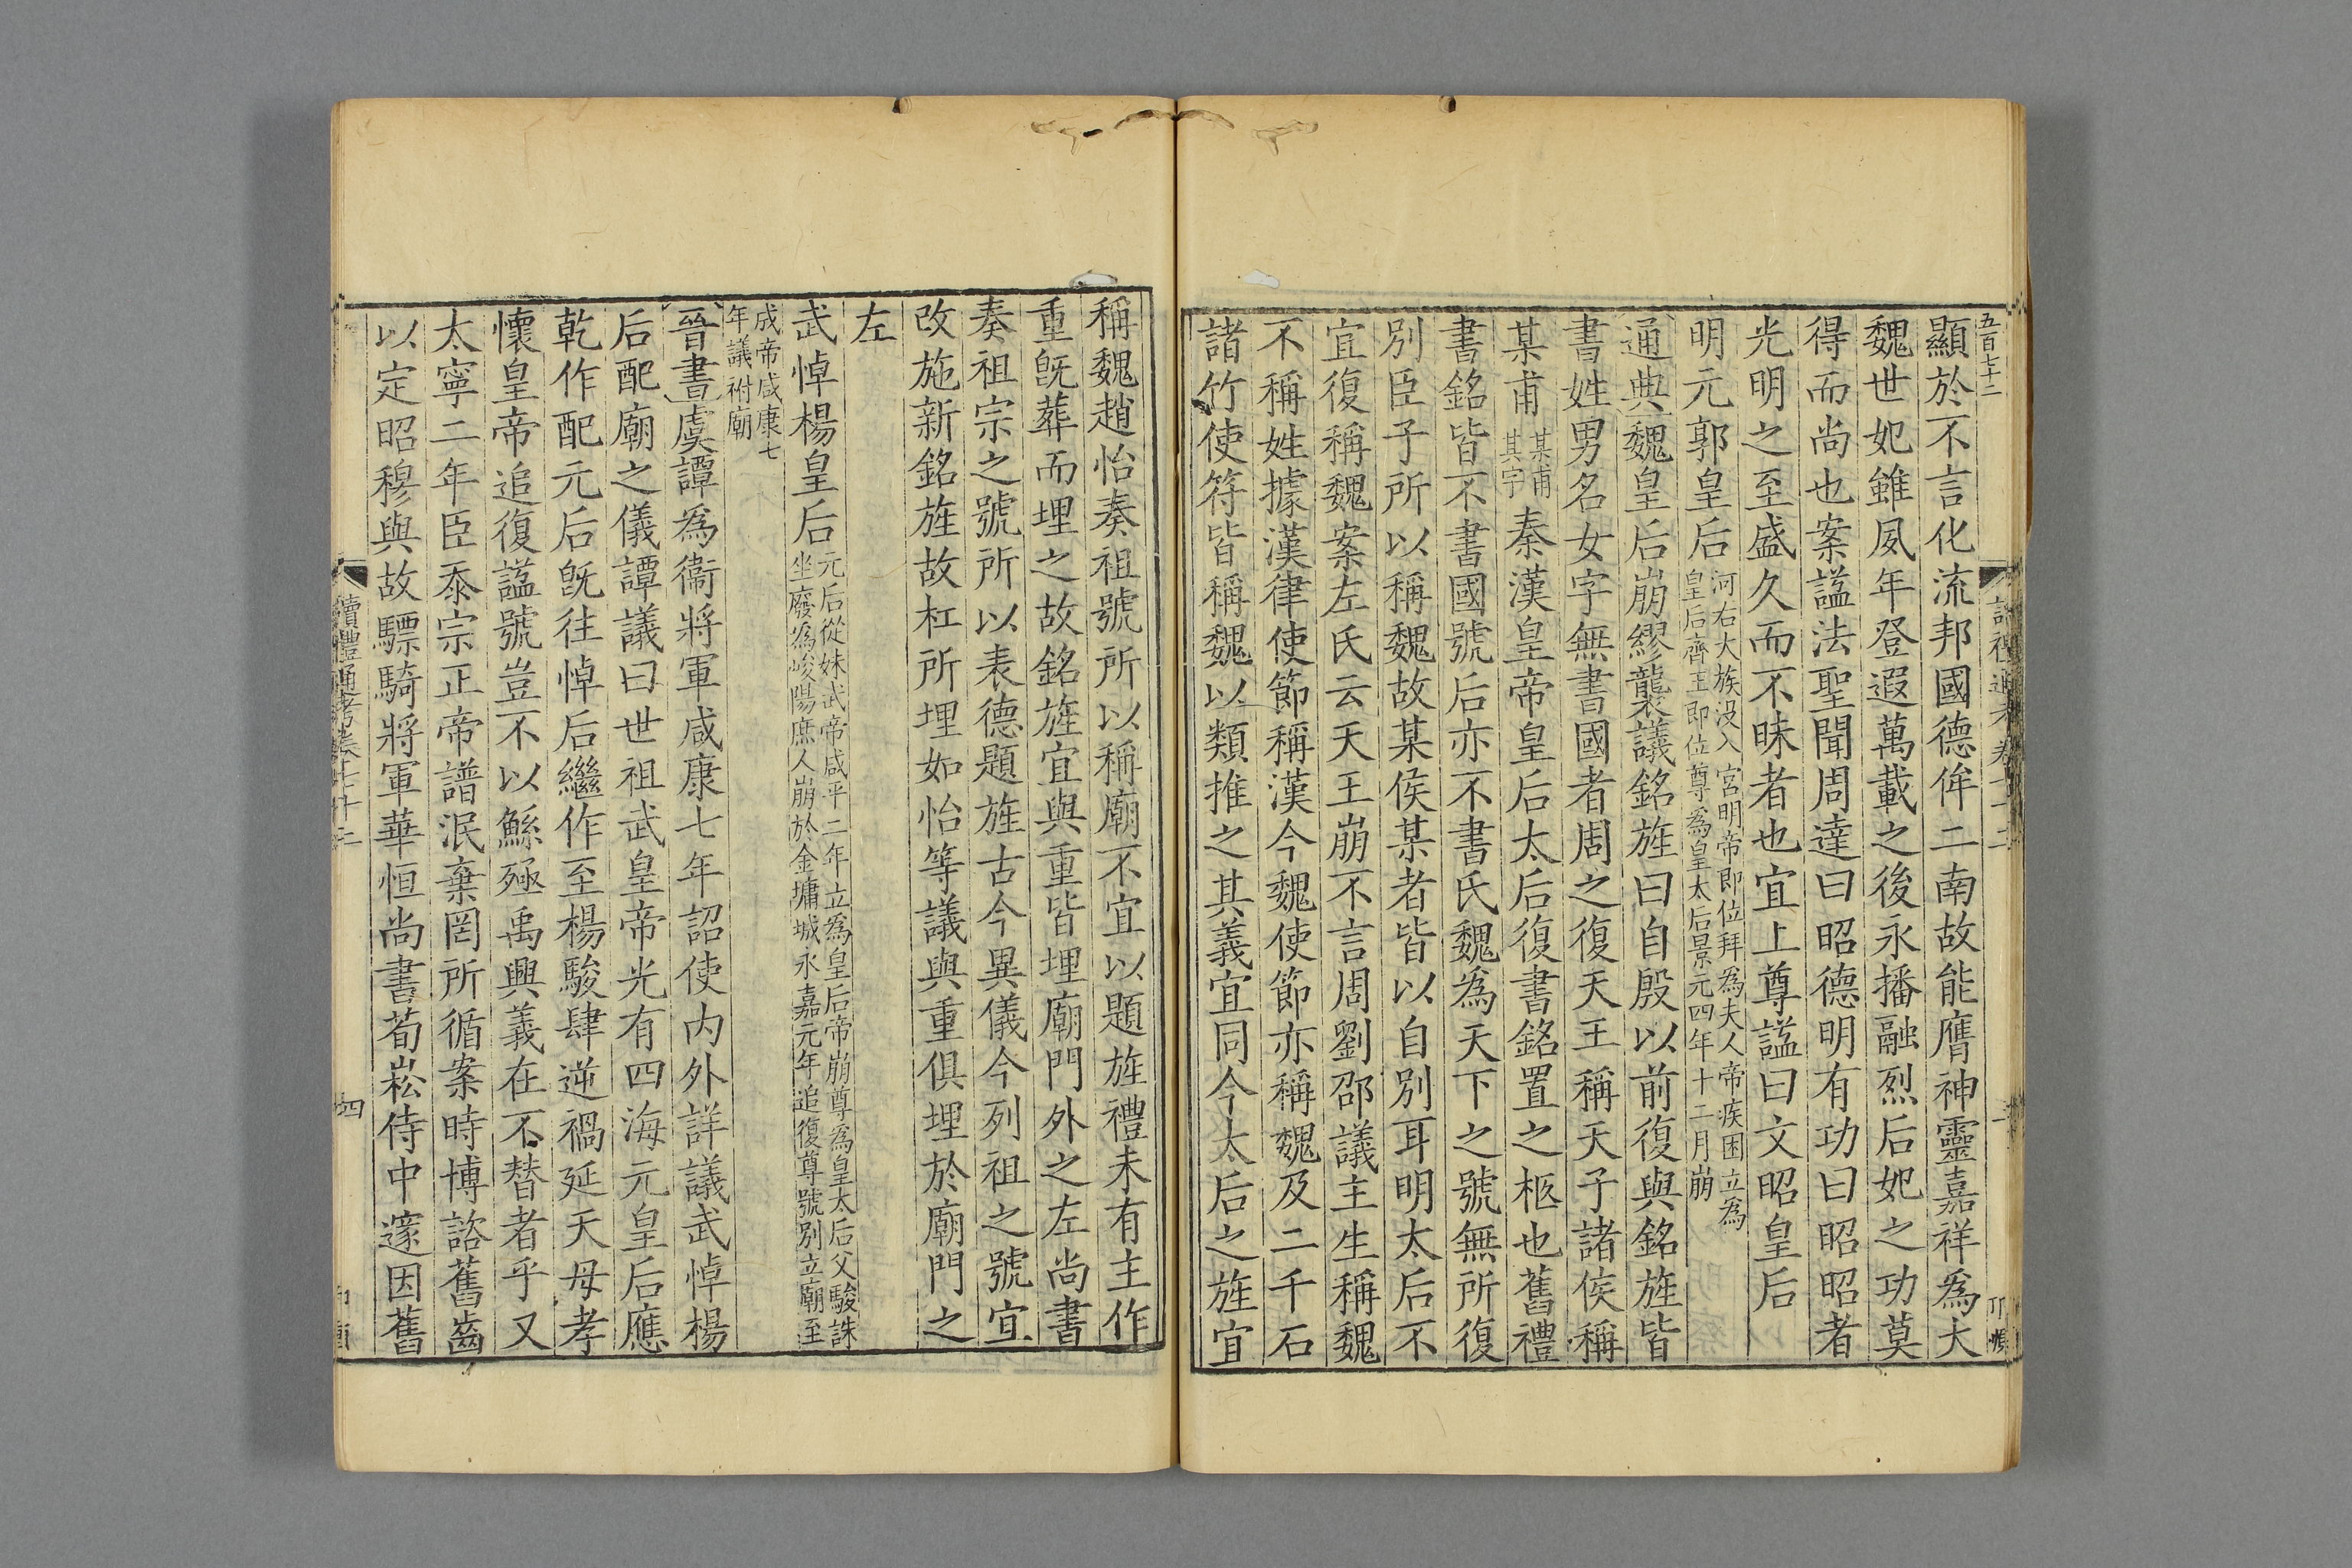 五百七十二
顯於不言化流邦國德侔二南故能膺神靈嘉祥爲大
魏世妃雖夙年登遐萬載之後永播融烈后妃之功莫
得而尚也案諡法聖聞周達曰昭德明有功曰昭昭者
光明之至盛久而不昧者也宜上尊諡曰文昭皇后
明元郭皇后
河右大族没入宮明帝即位拜爲夫人帝疾困立爲
皇后齊王即位尊爲皇太后景元四年十二月崩
通典魏皇后崩繆襲議銘旌曰自殷以前復與銘旌皆
書姓男名女字無書國者周之復天王稱天子諸侯稱
某甫
某甫
其字
秦漢皇帝皇后太后復書銘置之柩也舊禮
書銘皆不書國號后亦不書氏魏爲天下之號無所復
別臣子所以稱魏故某侯某者皆以自別耳明太后不
宜復稱魏案左氏云天王崩不言周劉邵議主生稱魏
不稱姓據漢律使節稱漢今魏使節亦稱魏及二千石
諸竹使符皆稱魏以類推之其義宜同今太后之旌宜
稱魏趙怡奏祖號所以稱廟不宜以題旌禮未有主作
重旣葬而埋之故銘旌宜與重皆埋廟門外之左尚書
奏祖宗之號所以表德題旌古今異儀今列祖之號宜
改施新銘旌故杠所埋如怡等議與重俱埋於廟門之
左
武悼楊皇后
元后從妹武帝咸平二年立爲皇后帝崩尊爲皇太后父駿誅
坐廢爲峻陽庶人崩於金墉城永嘉元年追復尊號別立廟至
成帝咸康七
年議祔廟
晉書虞譚爲衞將軍咸康七年詔使内外詳議武悼楊
后配廟之儀譚議曰世祖武皇帝光有四海元皇后應
乾作配元后旣往悼后繼作至楊駿肆逆禍延天母孝
懷皇帝追復諡號豈不以鯀殛禹興義在不替者乎又
太寧二年臣忝宗正帝譜泯棄罔所循案時博諮舊齒
以定昭穆與故驃騎將軍華恒尚書荀崧侍中𨗿因舊
讀禮通考卷七十二
四